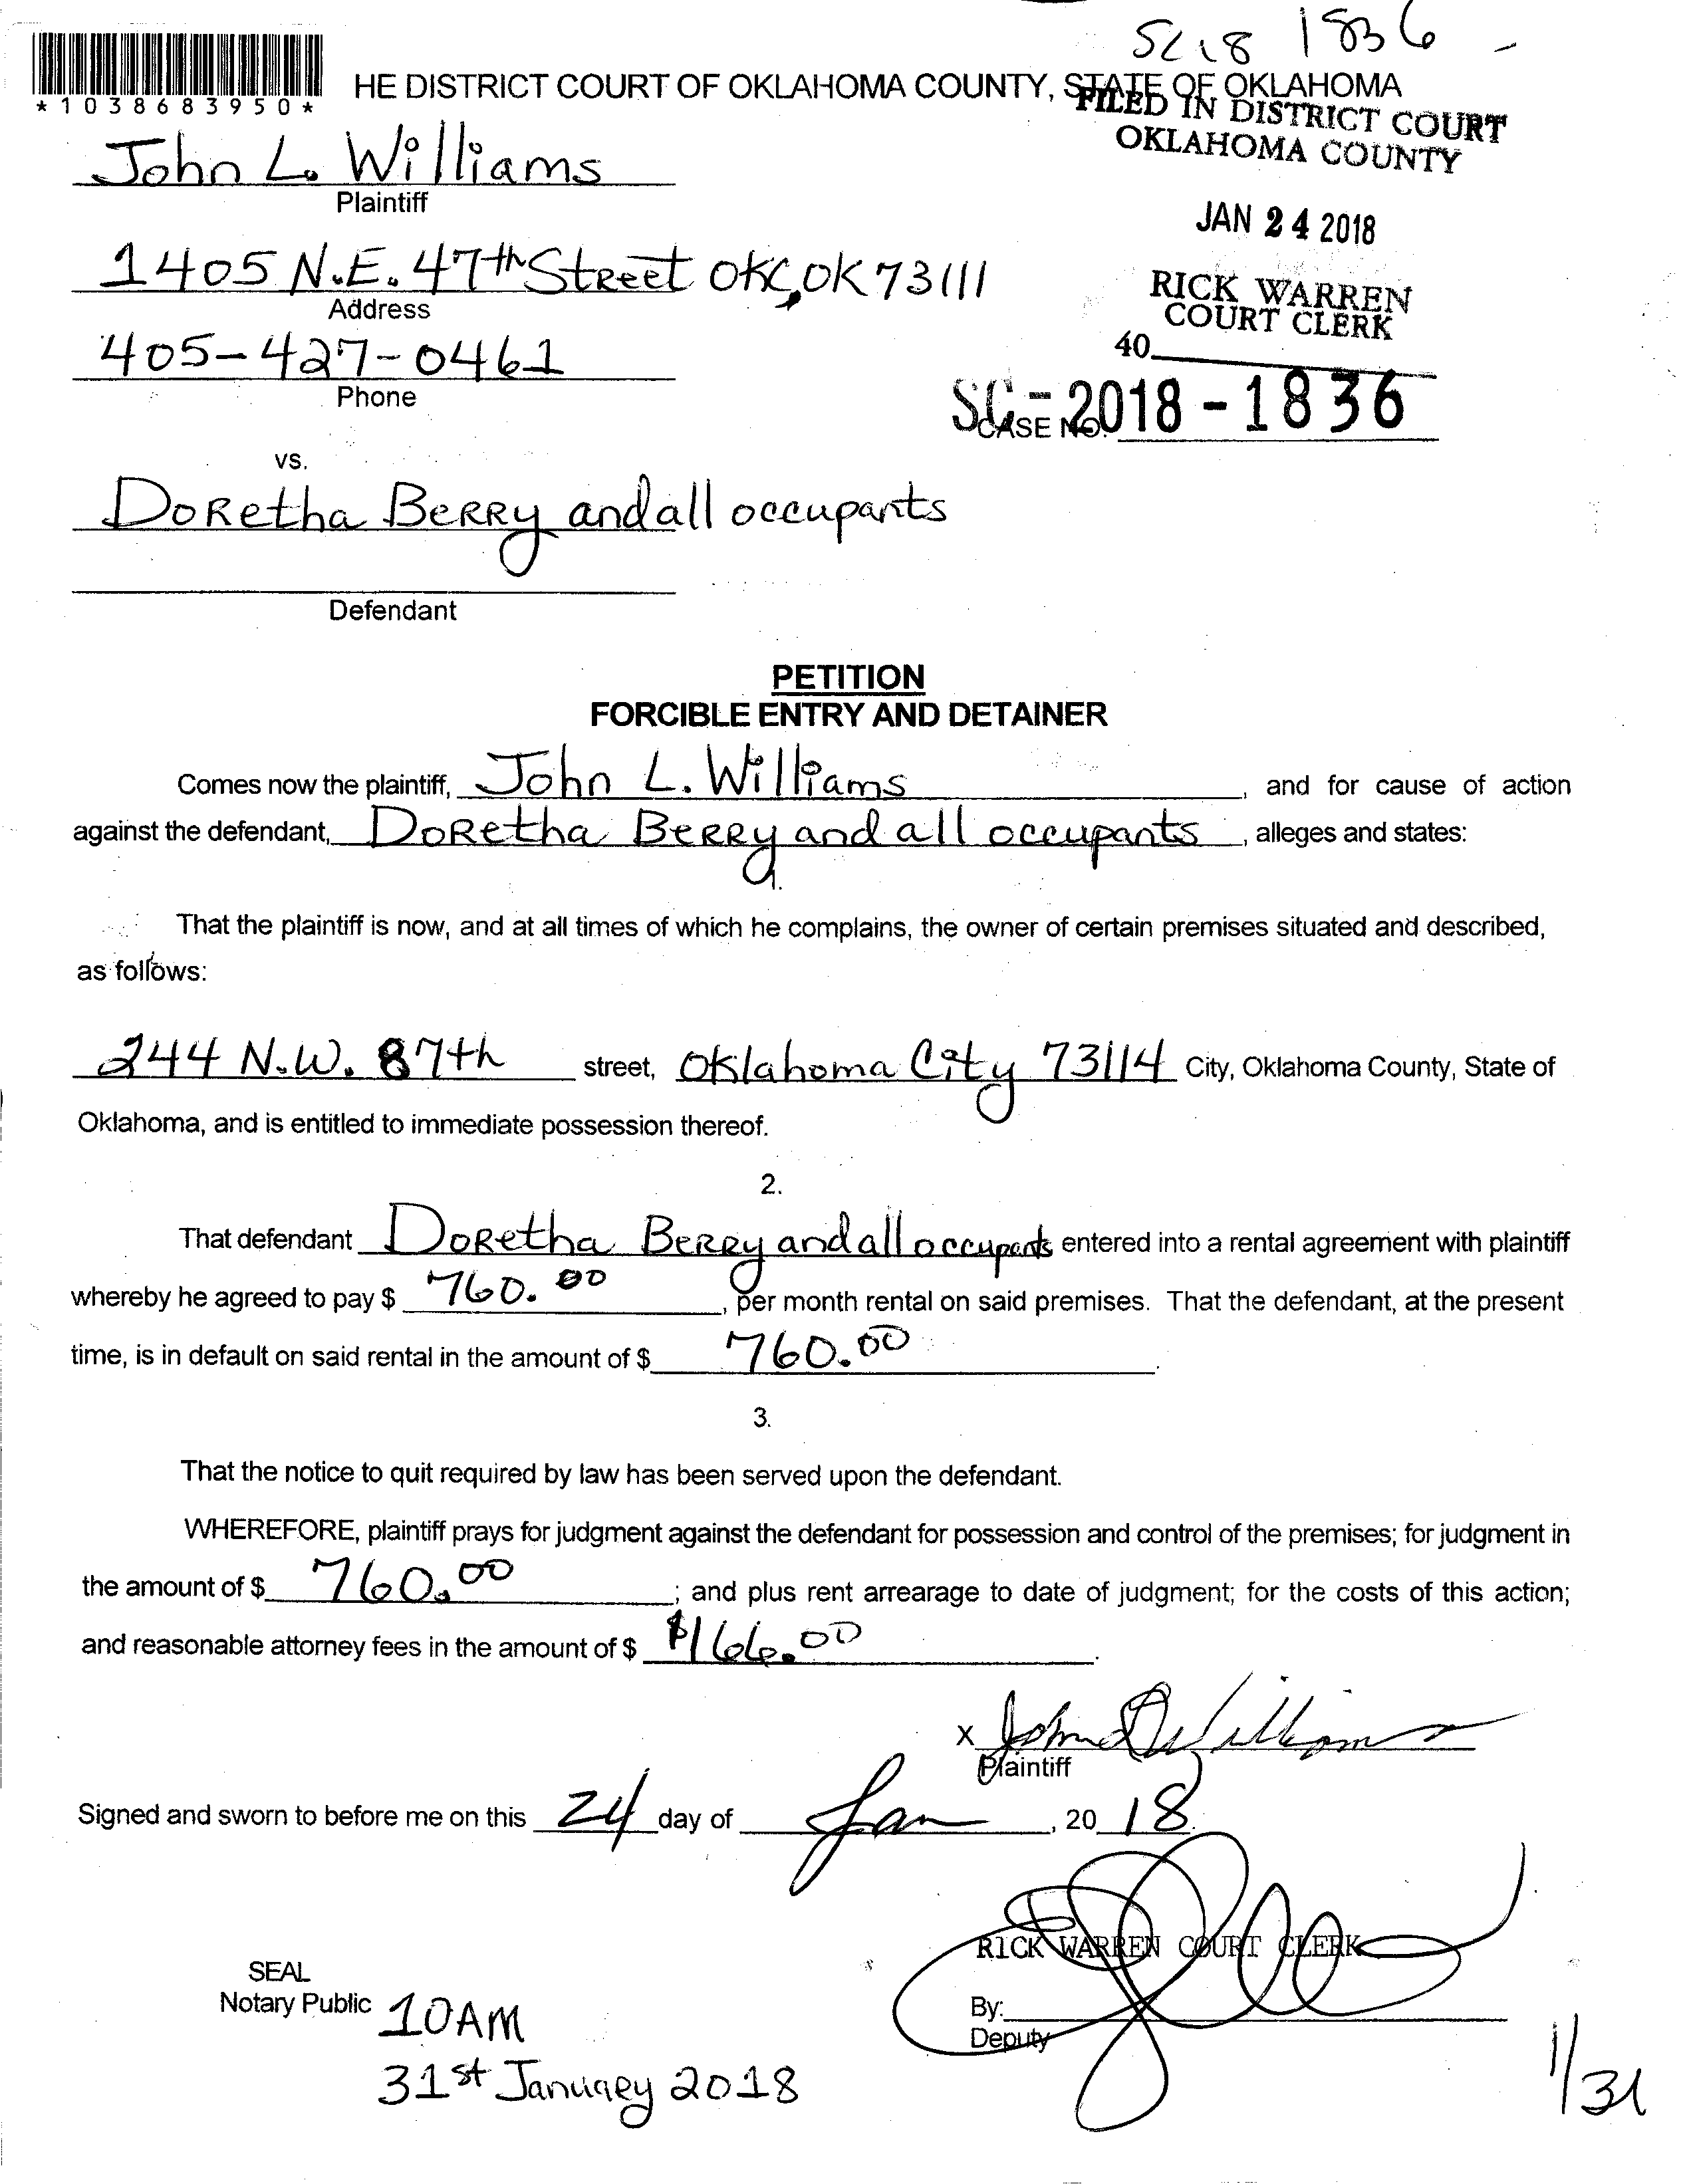 SC18 1836
*1038683950*
HE DISTRICT COURT OF OKLAHOMA COUNTY, STATE OF OKLAHOMA
FILED IN DISTRICT COURT
OKLAHOMA COUNTY
John L. Williams
Plaintiff
JAN 24 2018
1405 N.E. 47th Street OKC, OK 73111
Address
RICK WARREN
COURT CLERK
405-427-0461
40
Phone
SC-2018-1836
CASE NO.
vs.
Doretha Berry and all occupants
Defendant
PETITION
FORCIBLE ENTRY AND DETAINER
Comes now the plaintiff, John L. Williams, and for cause of action
against the defendant, Doretha Berry and all occupants, alleges and states:
1.
That the plaintiff is now, and at all times of which he complains, the owner of certain premises situated and described,
as follows:
244 N.W. 87th street, Oklahoma City 73114 City, Oklahoma County, State of
Oklahoma, and is entitled to immediate possession thereof.
2.
That defendant Doretha Berry and all occupants entered into a rental agreement with plaintiff
whereby he agreed to pay $ 760.00, per month rental on said premises. That the defendant, at the present
time, is in default on said rental in the amount of $ 760.00.
3.
That the notice to quit required by law has been served upon the defendant.
WHEREFORE, plaintiff prays for judgment against the defendant for possession and control of the premises; for judgment in
the amount of $ 760.00; and plus rent arrearage to date of judgment; for the costs of this action;
and reasonable attorney fees in the amount of $ $166.00.
X John L Williams
Plaintiff
Signed and sworn to before me on this 24 day of Jan, 2018.
RICK WARREN COURT CLERK
SEAL
Notary Public
By:
Deputy
10AM
31st January 2018
1/31